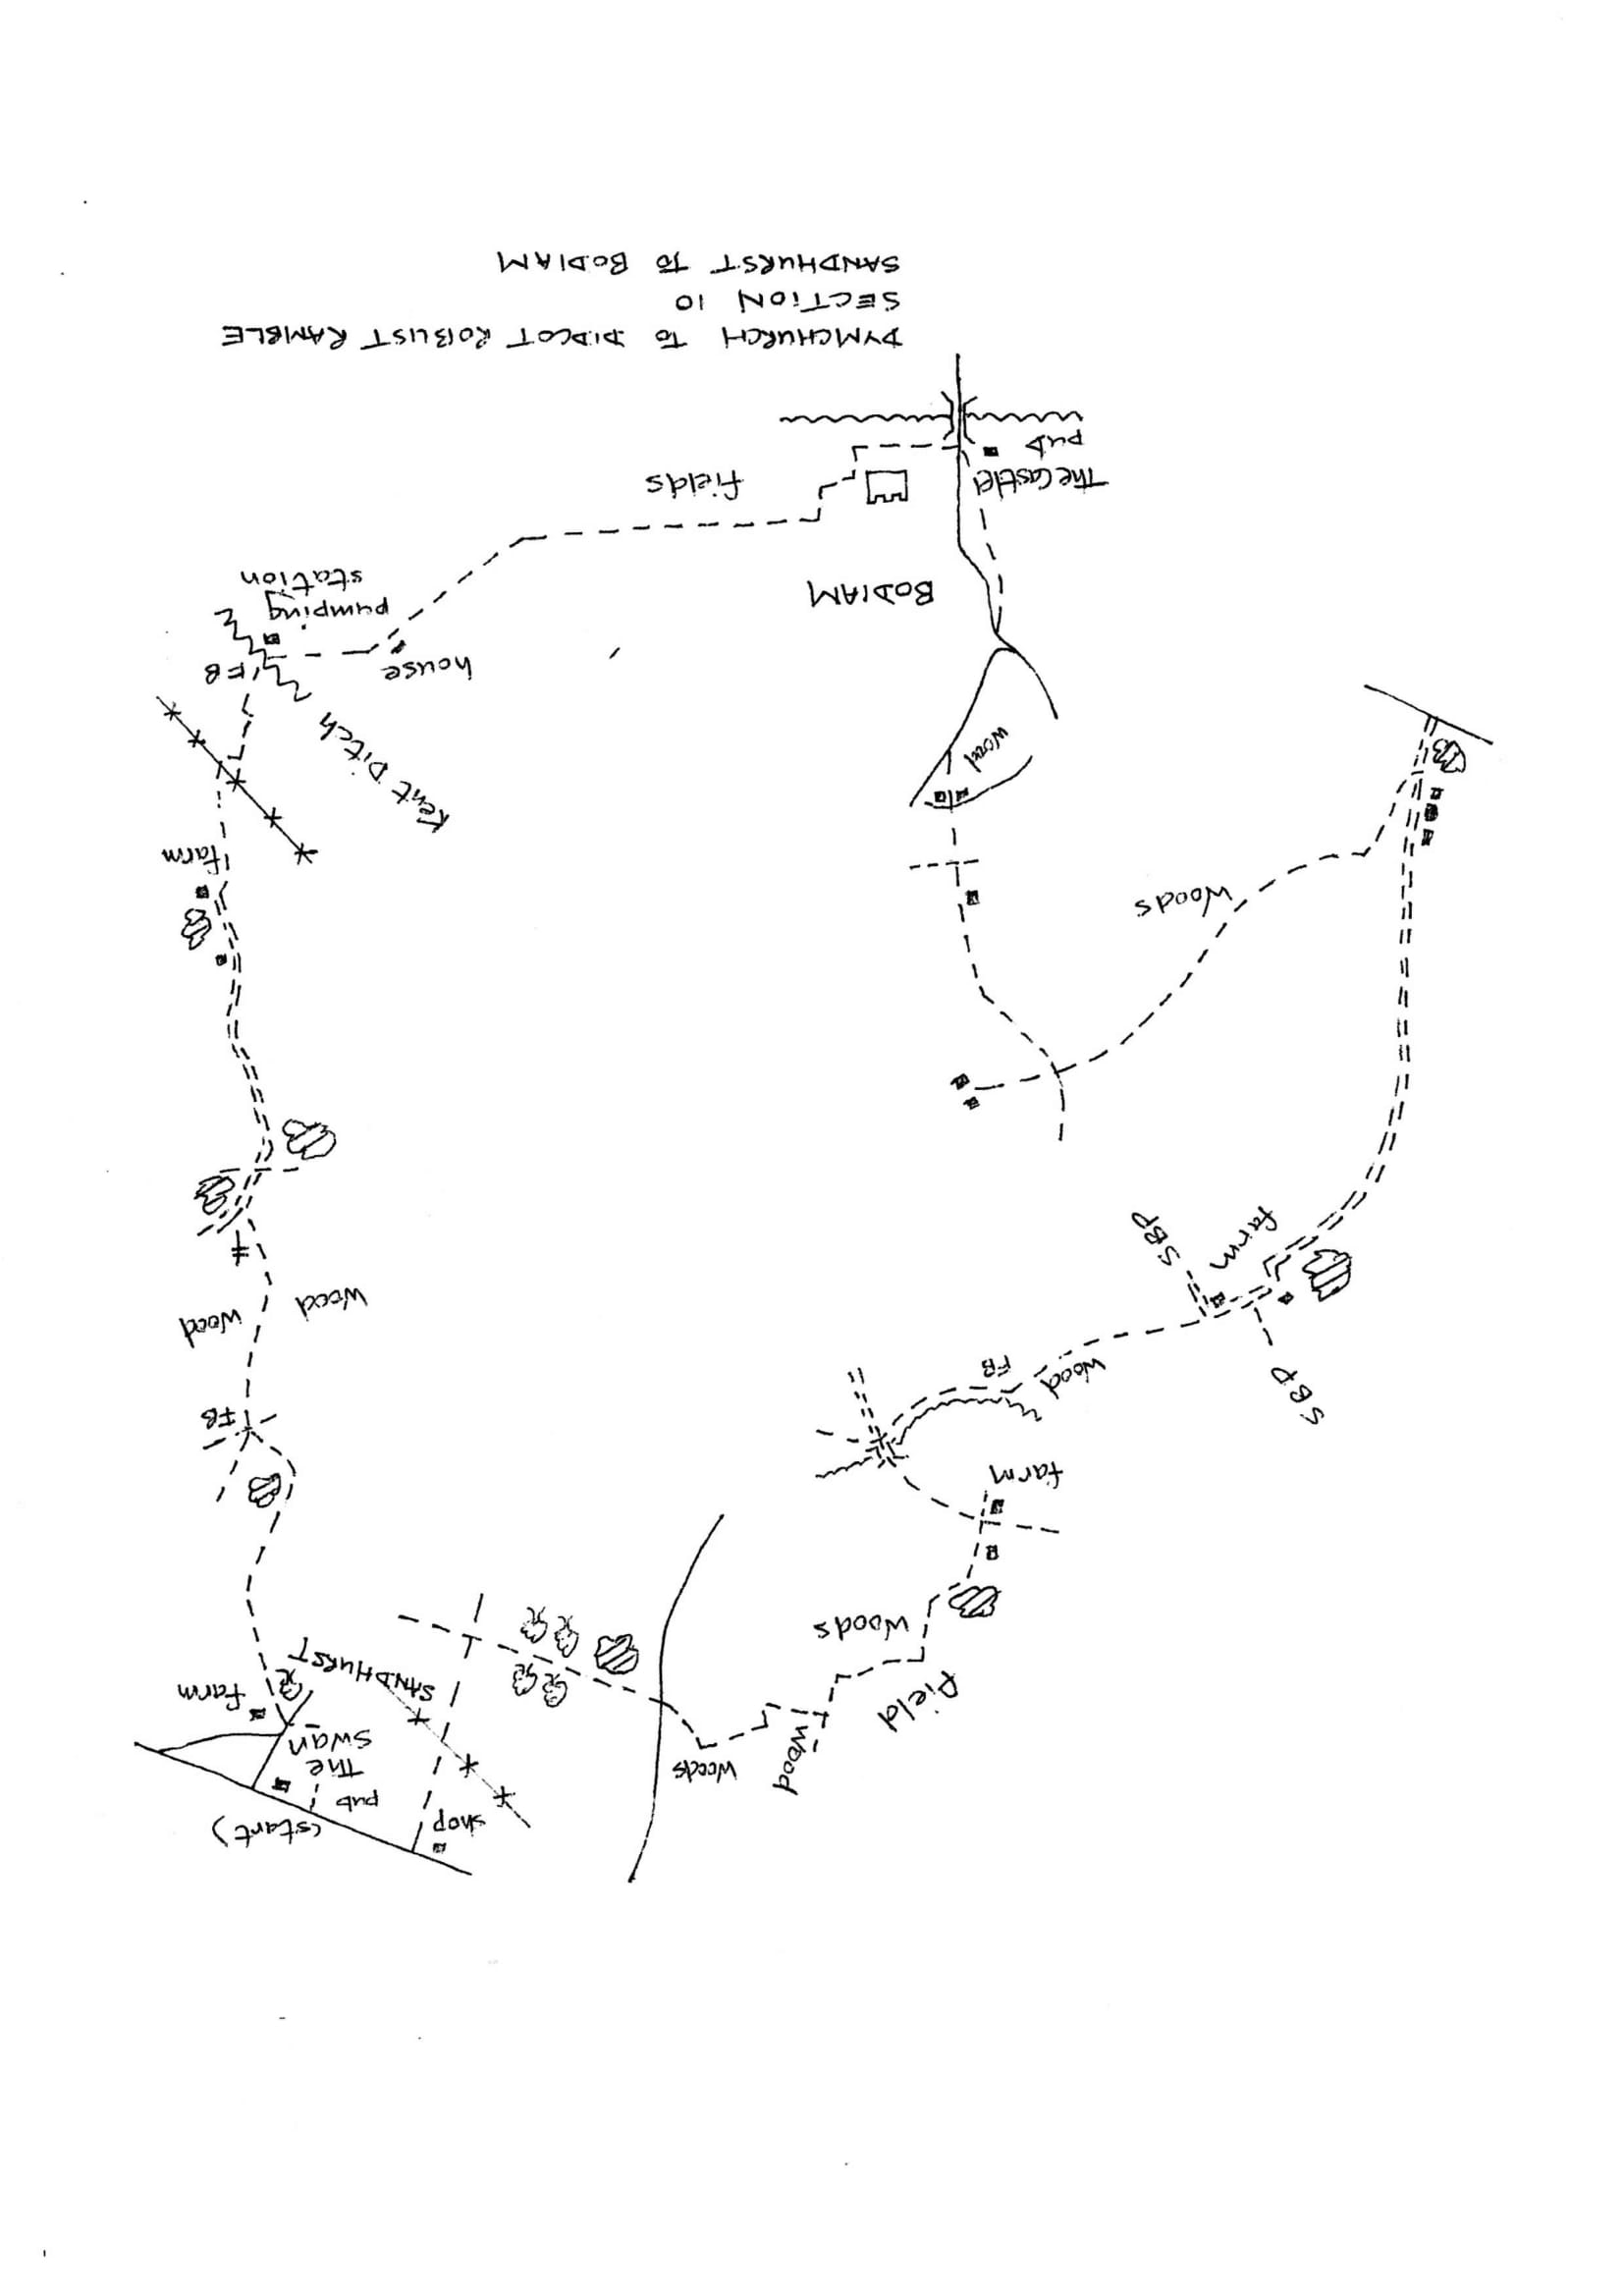 (start)
shop
pub
The
Swan
farm
SANDHURST
Wood
Woods
field
Woods
farm
FB
SBP
Wood
FB
wood
Wood
farm
SBP
Woods
farm
Kent Ditch
wood
house
FB
pumping
station
BODIAM
The Castle
pub
fields
DYMCHURCH TO DIDCOT ROBUST RAMBLE
SECTION 10
SANDHURST TO BODIAM